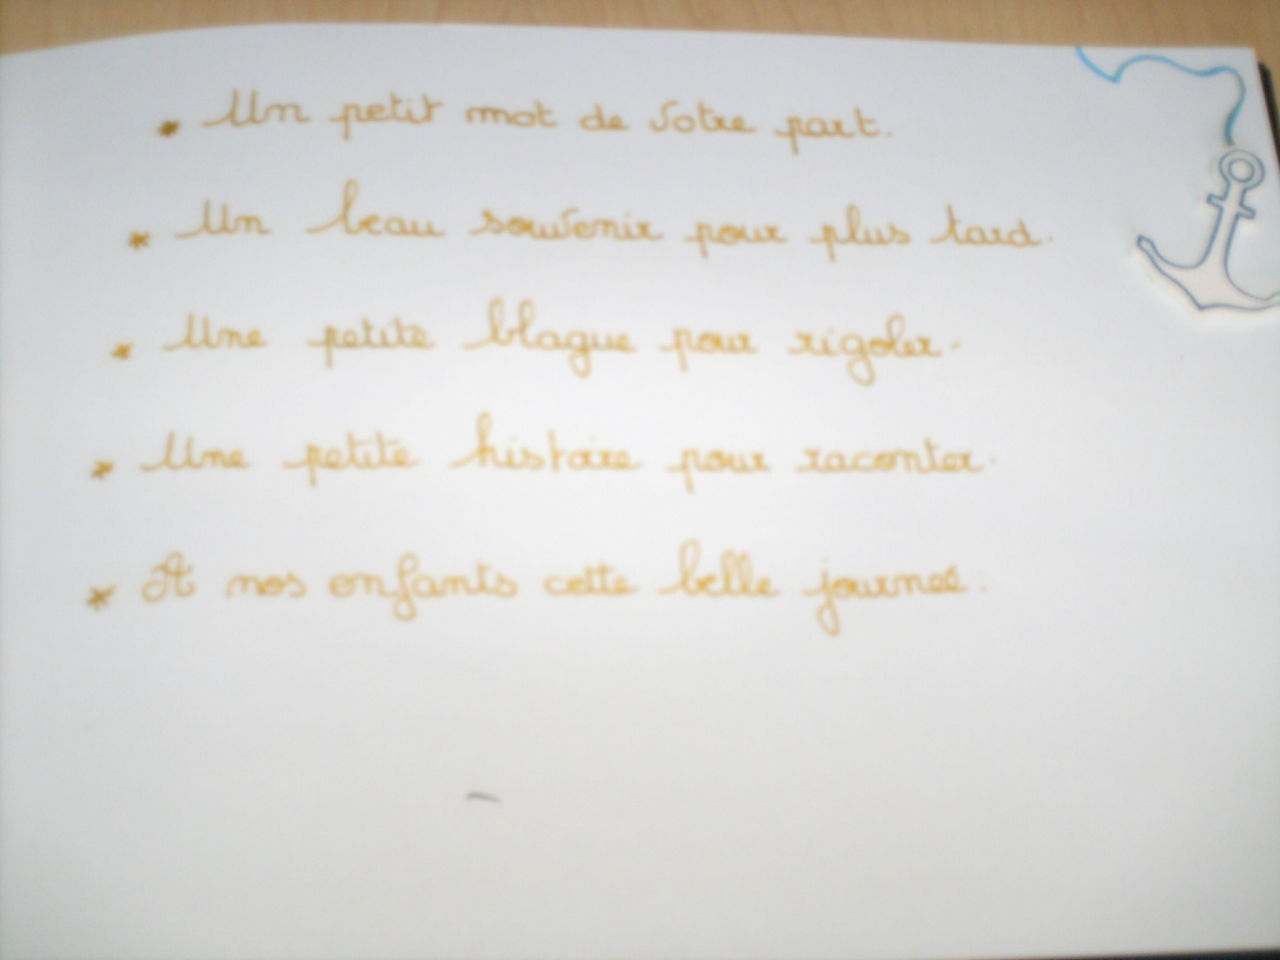 * Un petit mot de votre part.
* Un beau souvenir pour plus tard.
* Une petite blague pour rigoler.
* Une petite histoire pour raconter.
* A nos enfants cette belle journeé.